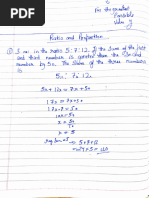 For the greatest
Possible
Value of
Ratio and Proportion
① 3 no. in the ratio 5:7:12. If the sum of the first
and third number is greater than the Second
number by 50. The Sum of the three numbers
is
5x : 7x : 12x
5x + 12x = 7x + 50
17x = 7x + 50
17x - 7x = 50
10x = 50
x = 50
10
x = 5
5+7+12
= 24×5 = 120